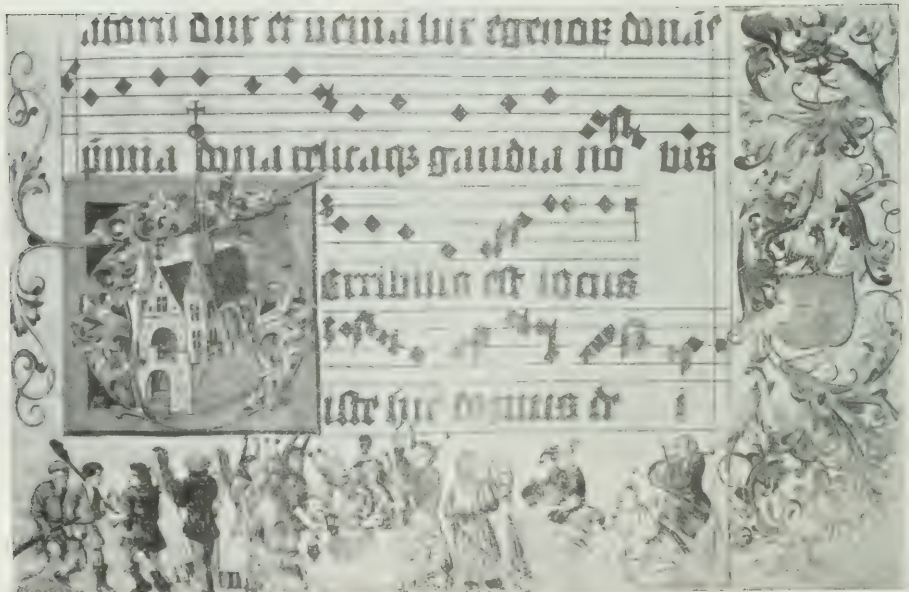 dux et uenia lux
p̄mia dona celicaqꝫ gaudia no bis
Terribilis est locus
iste hic domus de i